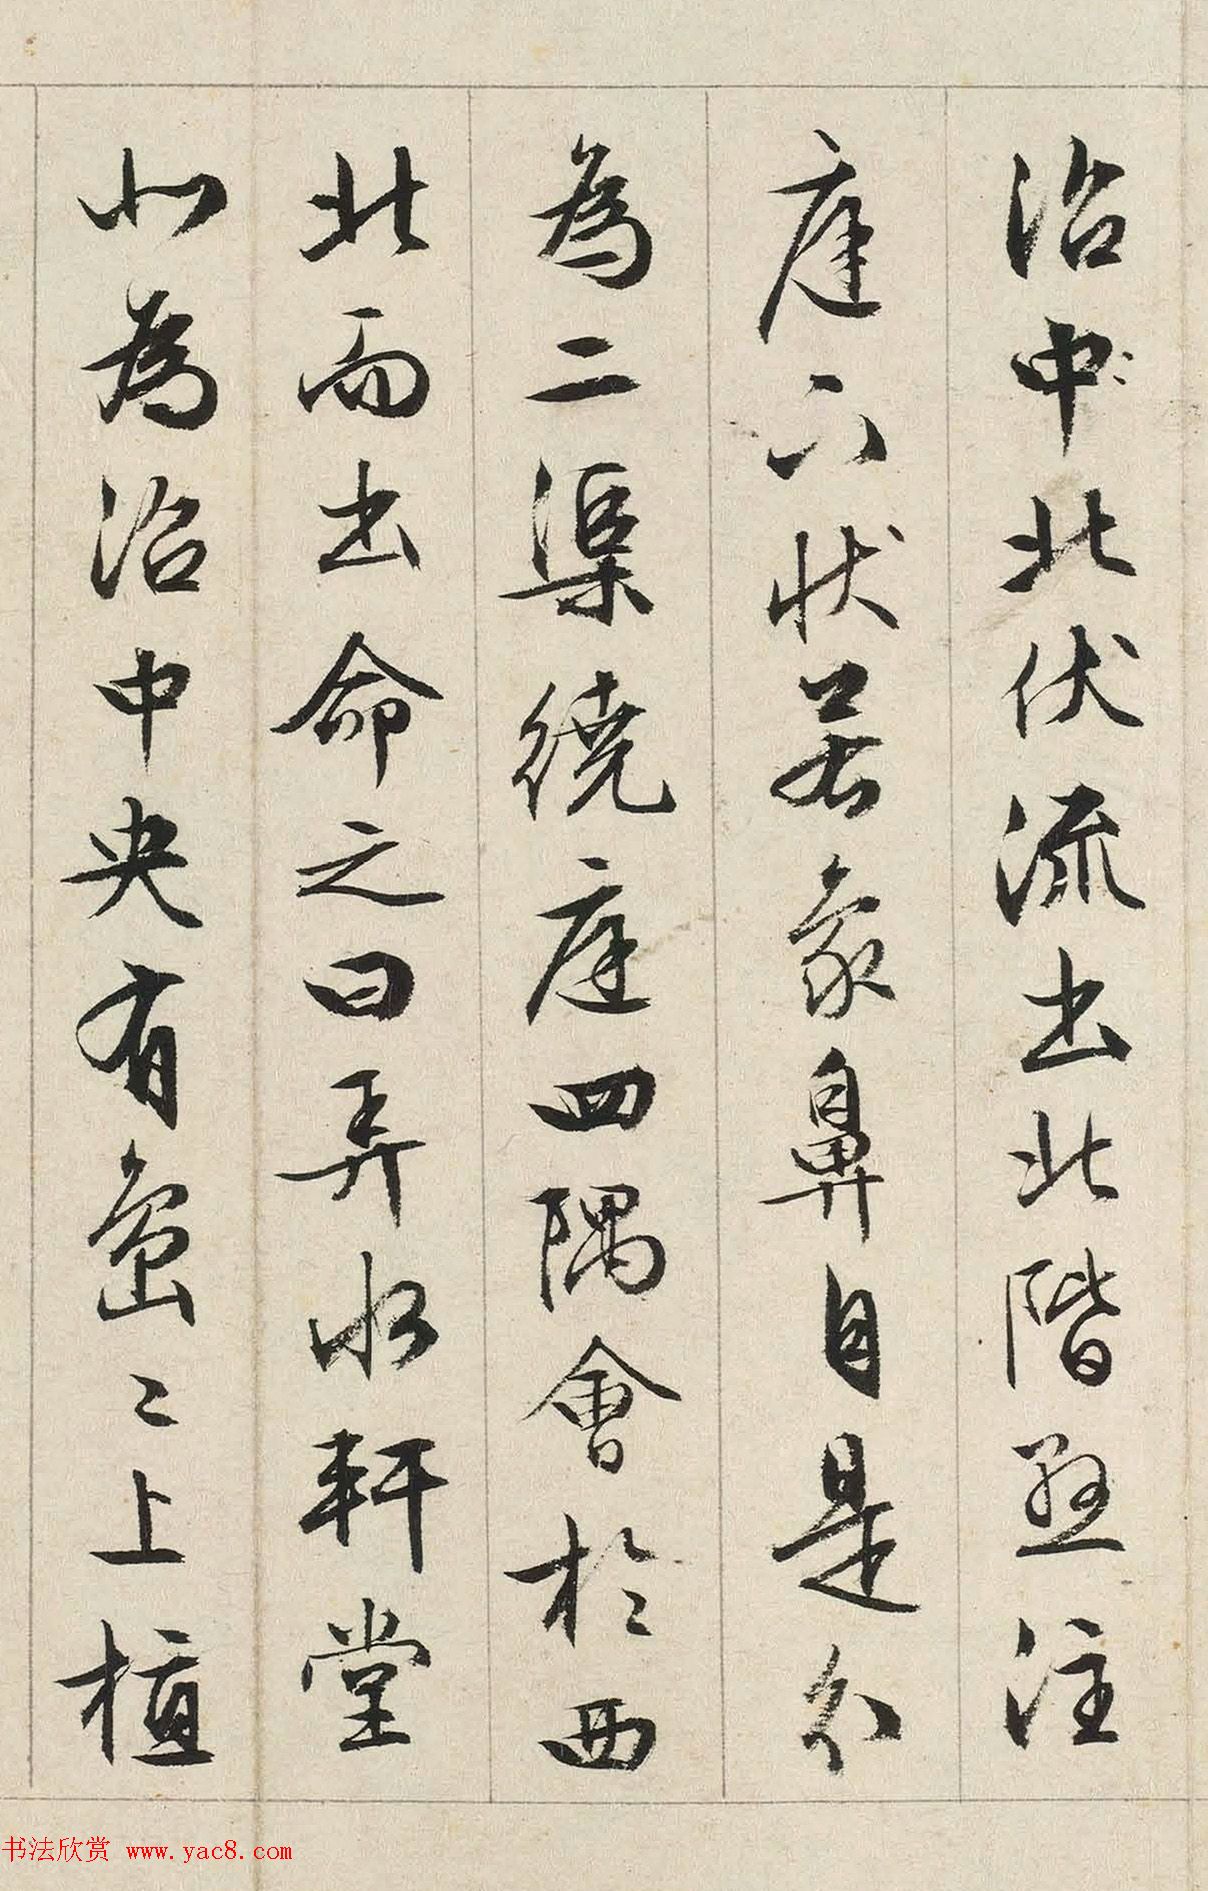 沼中〻北伏流出北階懸注
庭下状若象鼻自是分
為二渠繞庭四隅會於西
北而出命之曰弄水軒堂
北為沼中央有島〻上植
书法欣赏 www.yac8.com